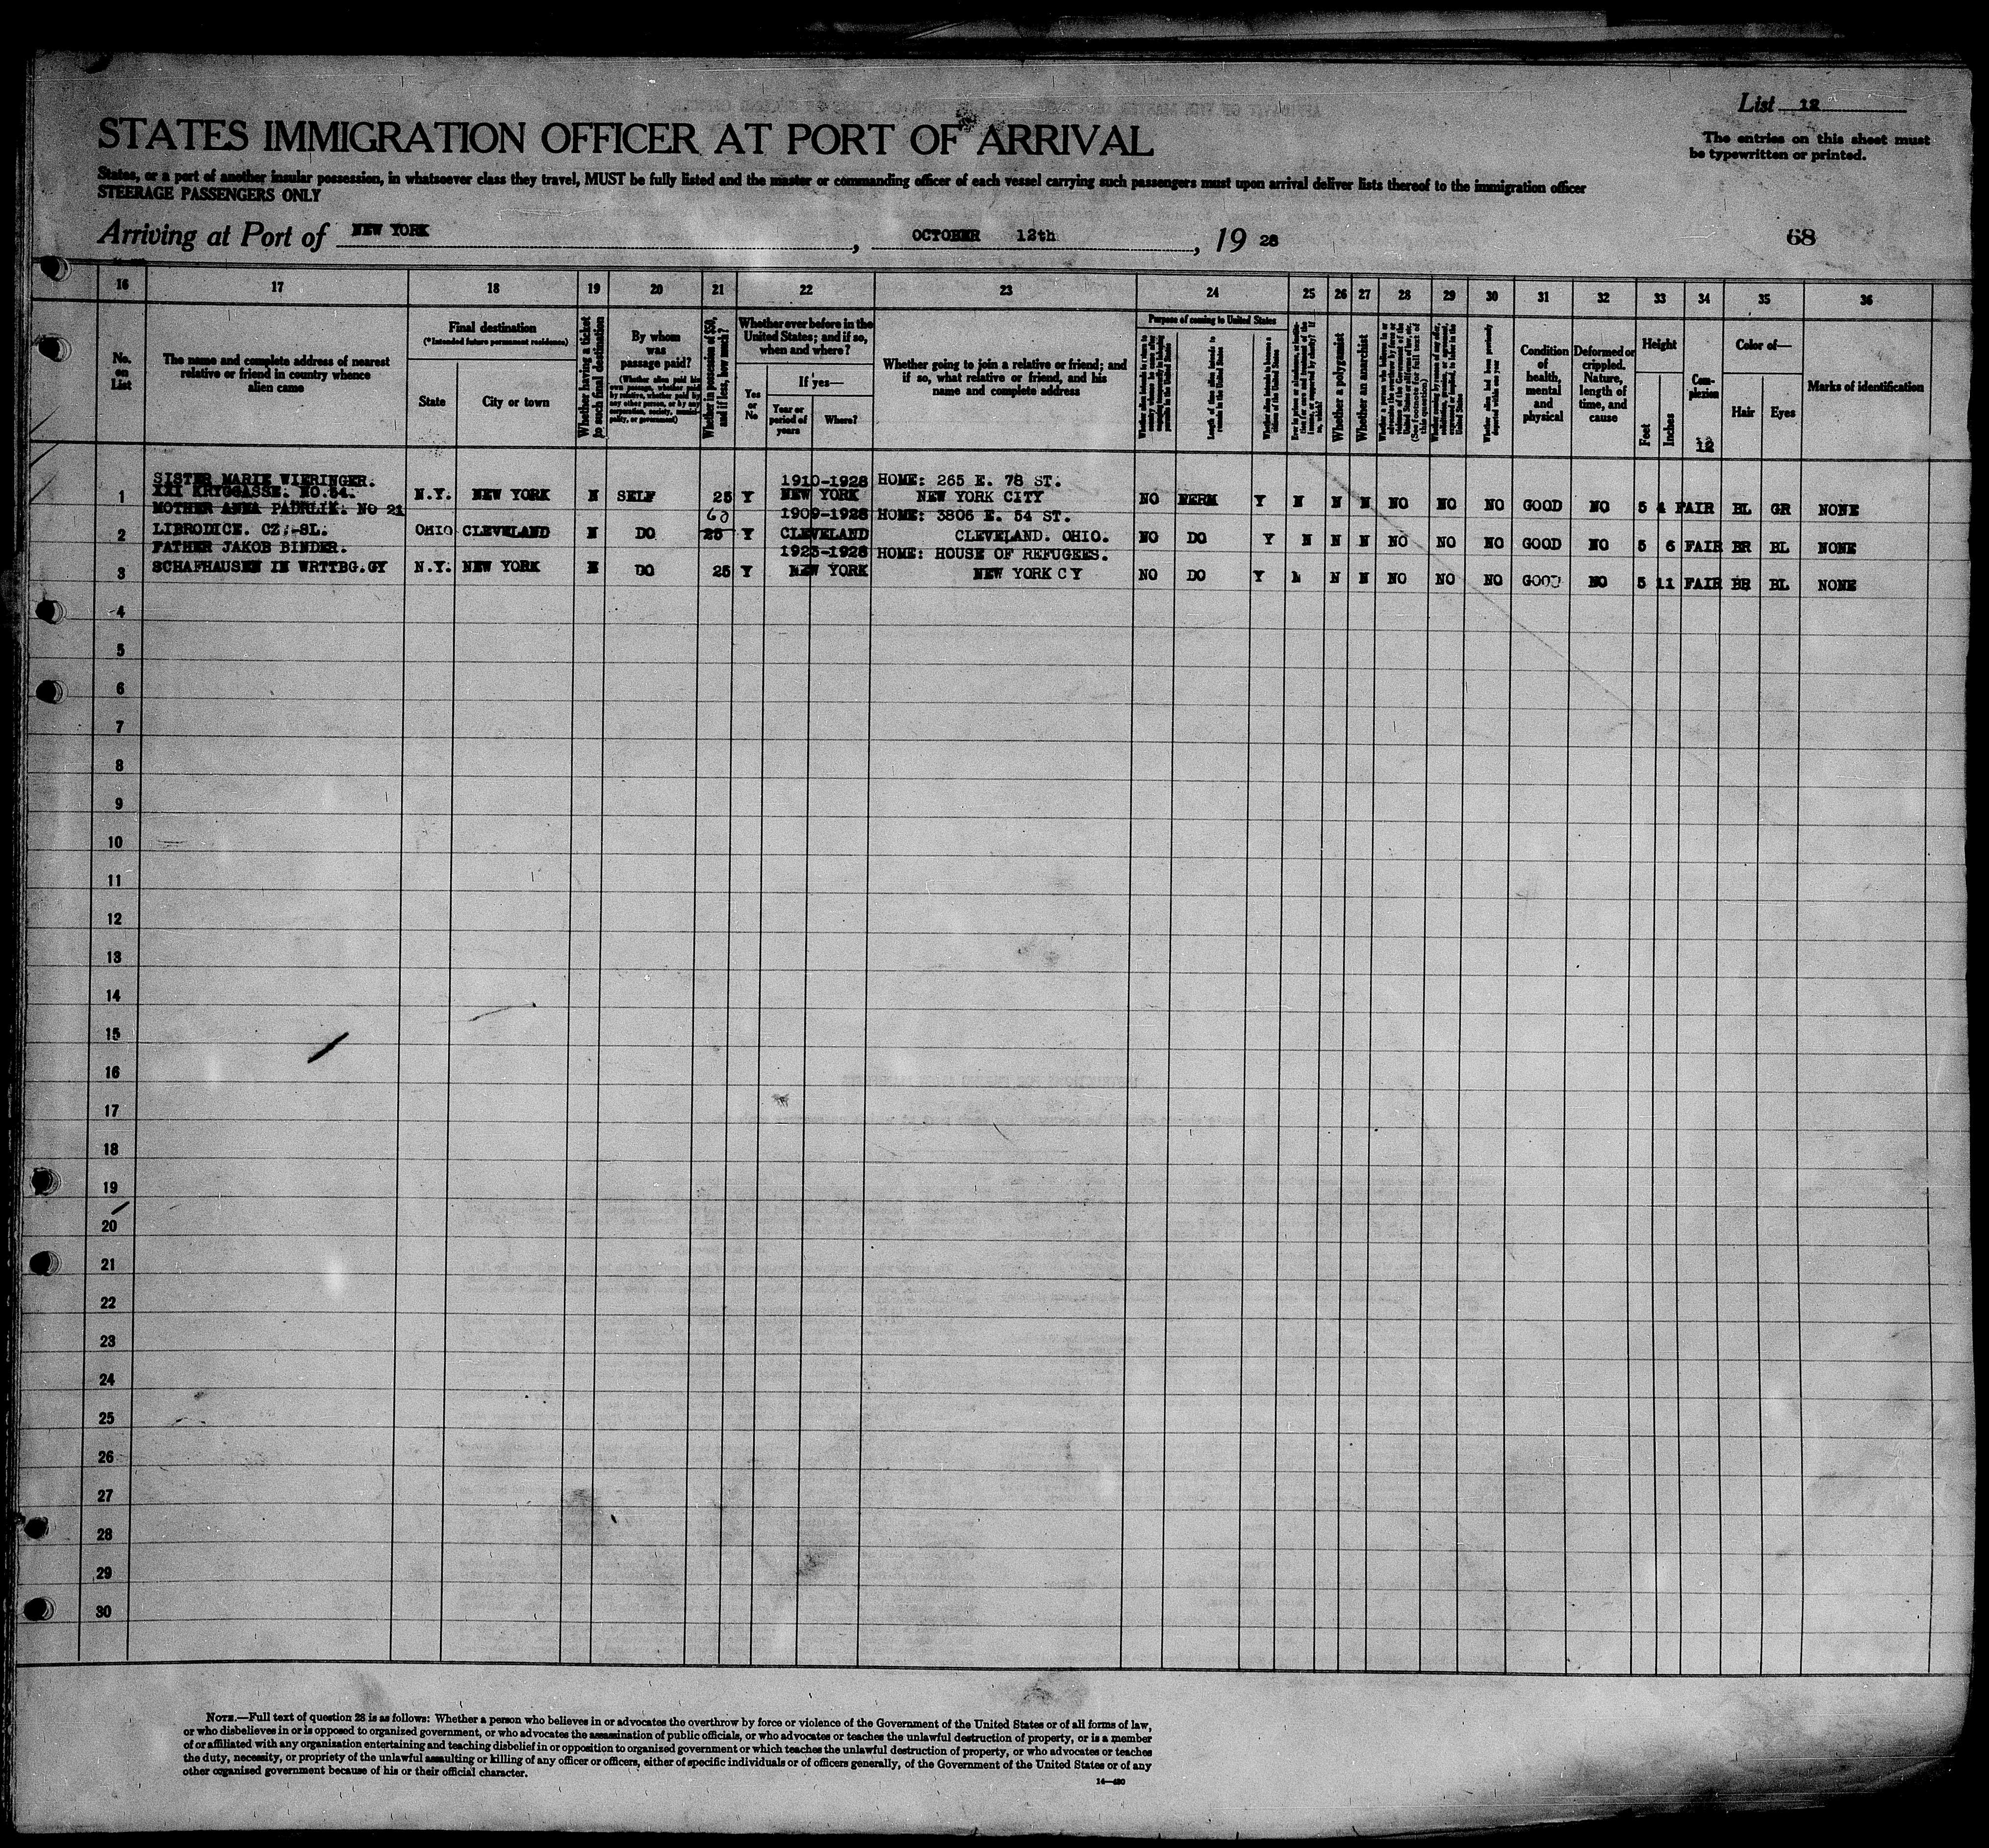 List 12
The entries on this sheet must
be typewritten or printed.
STATES IMMIGRATION OFFICER AT PORT OF ARRIVAL
States, or a port of another insular possession, in whatsoever class they travel, MUST be fully listed and the master or commanding officer of each vessel carrying such passengers must upon arrival deliver lists thereof to the immigration officer
STEERAGE PASSENGERS ONLY
Arriving at Port of NEW YORK, OCTOBER 12th, 19 28
68
16 17 18 19 20 21 22 23 24 25 26 27 28 29 30 31 32 33 34 35 36
No.
on
List
The name and complete address of nearest
relative or friend in country whence
alien came
Final destination
(*Intended future permanent residence)
State
City or town
Whether having a ticket
to such final destination
By whom
was
passage paid?
(Whether alien paid his
own passage, whether paid
by relative, whether paid by
any other person, or by any
corporation, society, munici-
pality, or government)
Whether in possession of $50,
and if less, how much?
Whether ever before in the
United States; and if so,
when and where?
Yes
or
No
If yes—
Year or
period of
years
Where?
Whether going to join a relative or friend; and
if so, what relative or friend, and his
name and complete address
Purpose of coming to United States
Length of time alien intends to
remain in the United States
Whether alien intends to become a
citizen of the United States
Whether a polygamist
Whether an anarchist
Whether alien had been previously
deported within one year
Condition
of
health,
mental
and
physical
Deformed or
crippled.
Nature,
length of
time, and
cause
Height
Feet
Inches
Com-
plexion
12
Color of—
Hair
Eyes
Marks of identification
SISTER MARIE WIERINGER. 1910-1928 HOME: 265 E. 78 ST.
1 XXI KRYGGASSE. NO.54. N.Y. NEW YORK N SELF 25 Y NEW YORK NEW YORK CITY NO PERM Y N N N NO NO NO GOOD NO 5 4 FAIR BL GR NONE
MOTHER ANNA PADRLIK. NO 21 60 1909-1928 HOME: 3806 E. 54 ST.
2 LIBRODICE. CZ.-SL. OHIO CLEVELAND N DO 25 Y CLEVELAND CLEVELAND. OHIO. NO DO Y N N N NO NO NO GOOD NO 5 6 FAIR BR BL NONE
FATHER JAKOB BINDER. 1923-1928 HOME: HOUSE OF REFUGEES.
3 SCHAFHAUSEN IN WRTTBG.GY N.Y. NEW YORK N DO 25 Y NEW YORK NEW YORK CY NO DO Y N N N NO NO NO GOOD NO 5 11 FAIR BR BL NONE
4
5
6
7
8
9
10
11
12
13
14
15
16
17
18
19
20
21
22
23
24
25
26
27
28
29
30
NOTE.—Full text of question 28 is as follows: Whether a person who believes in or advocates the overthrow by force or violence of the Government of the United States or of all forms of law,
or who disbelieves in or is opposed to organized government, or who advocates the assassination of public officials, or who advocates or teaches the unlawful destruction of property, or is a member
of or affiliated with any organization entertaining and teaching disbelief in or opposition to organized government or which teaches the unlawful destruction of property, or who advocates or teaches
the duty, necessity, or propriety of the unlawful assaulting or killing of any officer or officers, either of specific individuals or of officers generally, of the Government of the United States or of any
other organized government because of his or their official character.
14—480